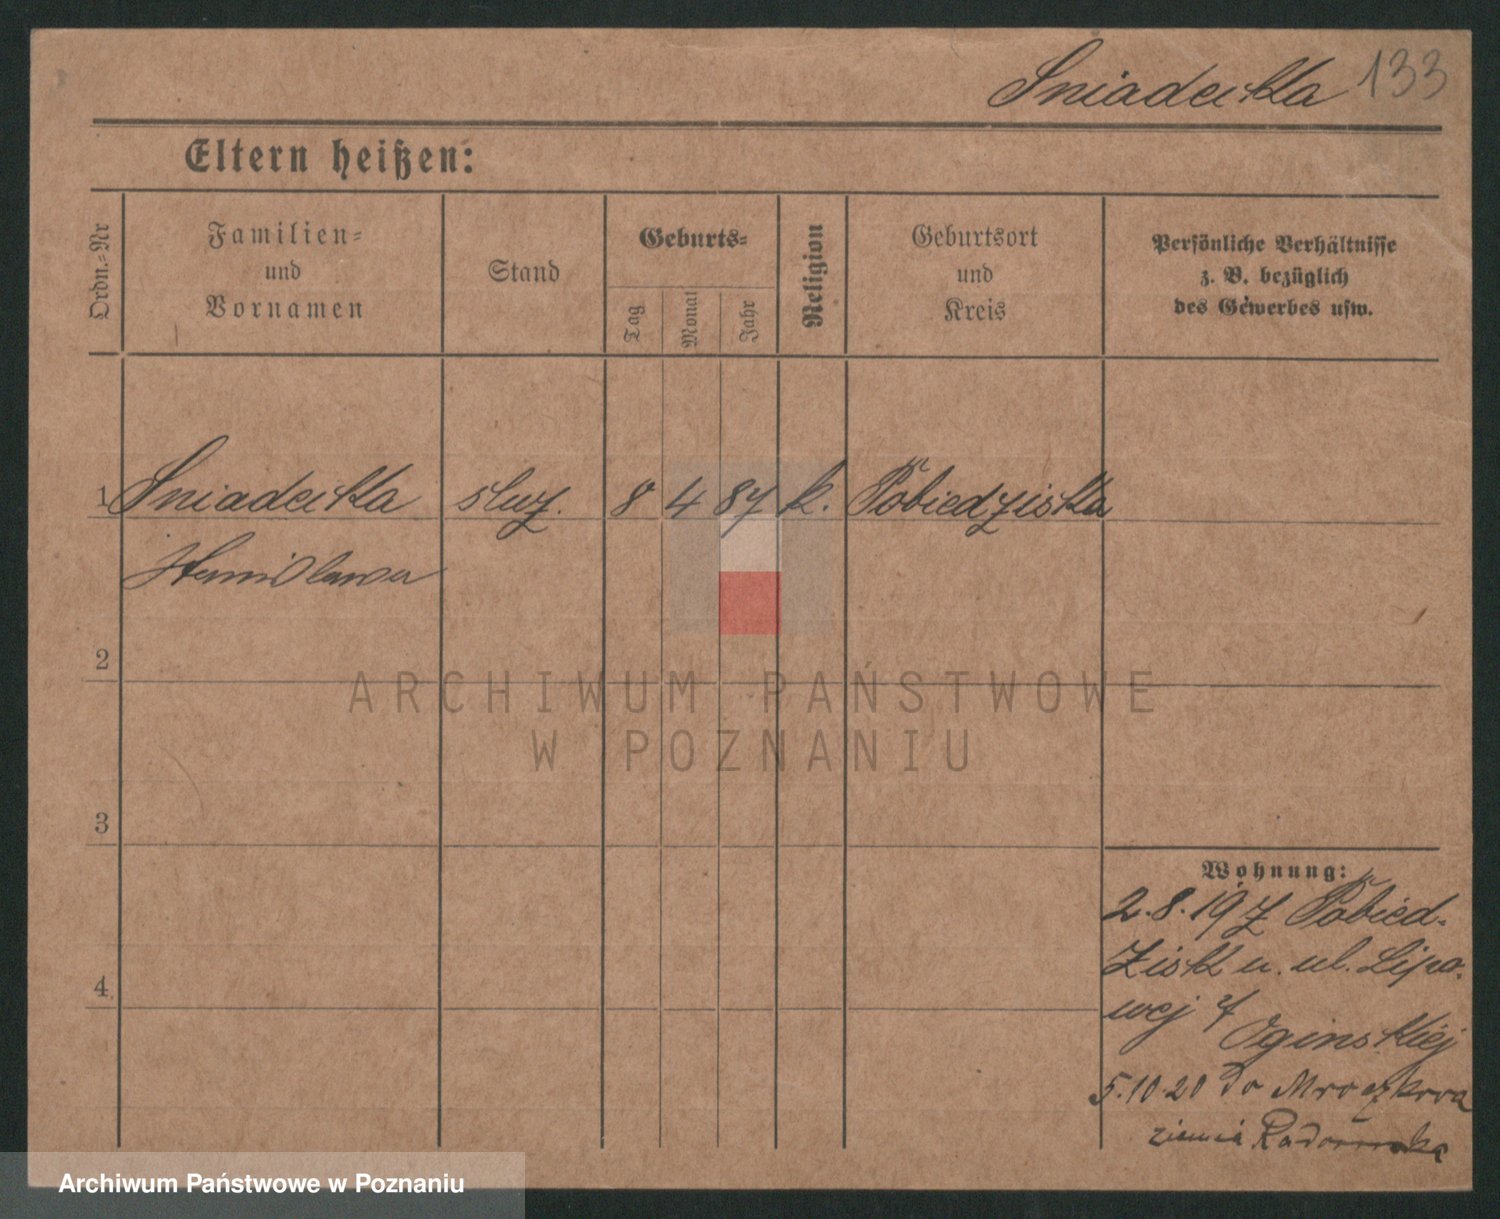 Sniadecka 133
Eltern heißen:
Ordn.=Nr
Familien=
und
Vornamen
Stand
Geburts=
Tag
Monat
Jahr
Religion
Geburtsort
und
Kreis
Persönliche Verhältnisse
z. B. bezüglich
des Gewerbes usw.
1 Sniadecka służ. 8 4 87 k. Pobiedziska
Stanisława
2
ARCHIWUM PAŃSTWOWE
W POZNANIU
3
Wohnung:
2.8.19 z Pobied-
zisk u. ul. Lipo-
wej 4 Oginskiej
4
5.10.20 do Mroczkowa
ziemia Radomska
Archiwum Państwowe w Poznaniu